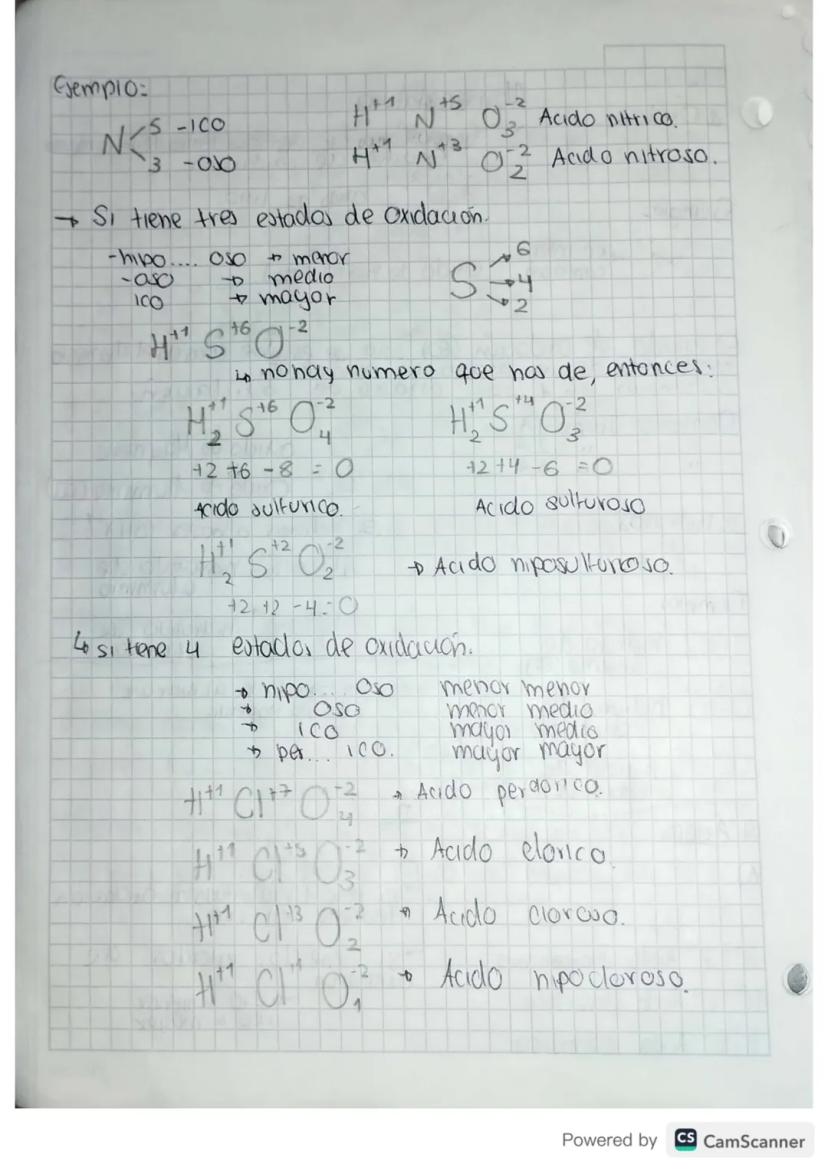 Ejemplo:
N 5 -ICO
3 -OSO
H⁺¹ N⁺⁵ O₃⁻² Acido nitrico.
H⁺¹ N⁺³ O₂⁻² Acido nitroso.
→ Si tiene tres estados de oxidación.
-hipo.... oso → menor
-oso → medio
ico → mayor
S → 6
→ 4
→ 2
H⁺¹ S⁺⁶ O⁻²
↳ no hay numero que nos de, entonces:
H₂⁺¹ S⁺⁶ O₄⁻² H₂⁺¹ S⁺⁴ O₃⁻²
+2 +6 -8 = 0 +2 +4 -6 = 0
Acido sulfurico. Acido sulfuroso
H₂⁺¹ S⁺² O₂⁻² → Acido hiposulfuroso.
+2 +2 -4 = 0
↳ si tiene 4 estados de oxidación.
→ hipo... oso menor menor
→ oso menor medio
→ ico mayor medio
→ per... ico. mayor mayor
H⁺¹ Cl⁺⁷ O₄⁻² → Acido perclorico.
H⁺¹ Cl⁺⁵ O₃⁻² → Acido clorico.
H⁺¹ Cl⁺³ O₂⁻² → Acido cloroso.
H⁺¹ Cl⁺¹ O₁⁻² → Acido hipocloroso.
Powered by CS CamScanner